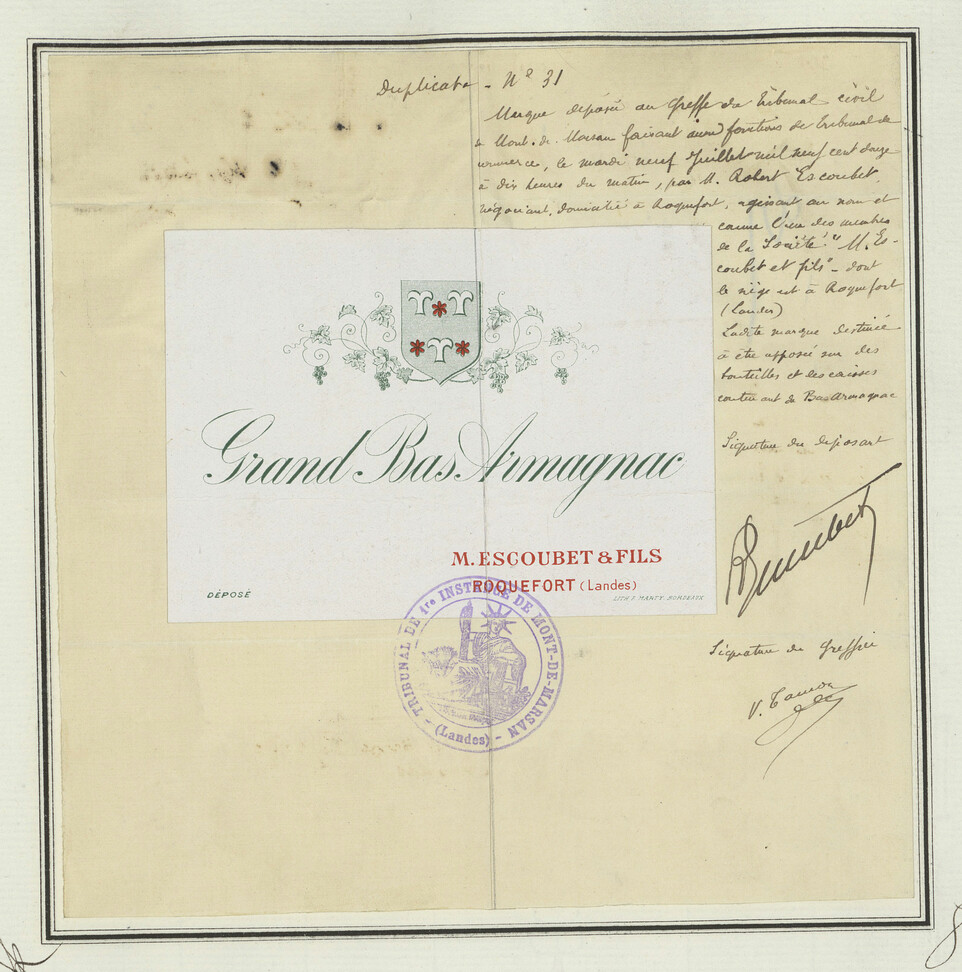 Duplicata - Nº 31
Marque déposée au Greffe du Tribunal civil
de Mont-de-Marsan faisant fonctions de Tribunal de
commerce, le mardi neuf Juillet mil neuf cent douze
à dix heures du matin, par M. Robert Escoubet,
négociant, domicilié à Roquefort, agissant au nom et
comme l'un des membres
de la Société "M. Es-
coubet et fils" - dont
le siège est à Roquefort
(Landes)
Ladite marque destinée
à être apposée sur des
bouteilles et des caisses
contenant du Bas Armagnac
Signature du déposant
Signature du Greffier
Grand Bas Armagnac
M. ESCOUBET & FILS
ROQUEFORT (Landes)
DÉPOSÉ
TRIBUNAL DE 1re INSTANCE DE MONT-DE-MARSAN
- (Landes) -